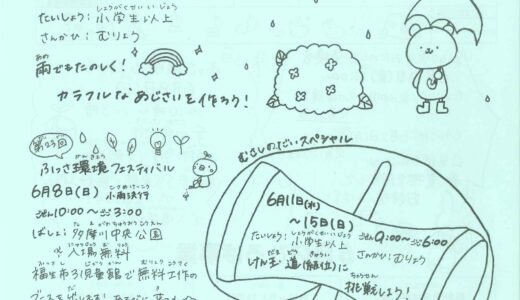 たいしょう：小学生以上
さんかひ：むりょう
雨でもたのしく！
カラフルなあじさいを作ろう！
第23回
ふっさ環境フェスティバル
6月8日(日) 小雨決行
10:00～3:00
ばしょ：多摩川中央公園
入場無料
福生市3児童館で無料工作の
むさしのだいスペシャル
6月11日(水)
～15日(日)
たいしょう：小学生以上
9:00～6:00
さんかひ：むりょう
けん玉道(級位)に
挑戦しよう！